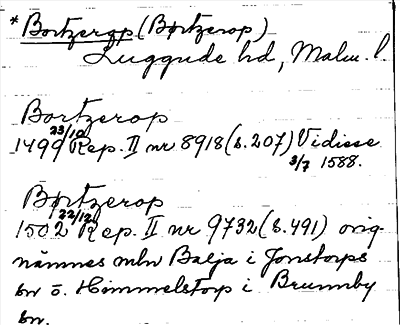 *Bortzerop (Børtzerop)
Luggude hd, Malm. l.
Bortzerop
1499 23/10 Rep. II nr 8918 (s.207) Vidisse
3/7 1588.
Børtzerop
1502 22/12 Rep. II nr 9732 (s.491) orig.
nämnes mln Balja i Jonstorps
sn o. Himmelstorp i Brunnby
sn.